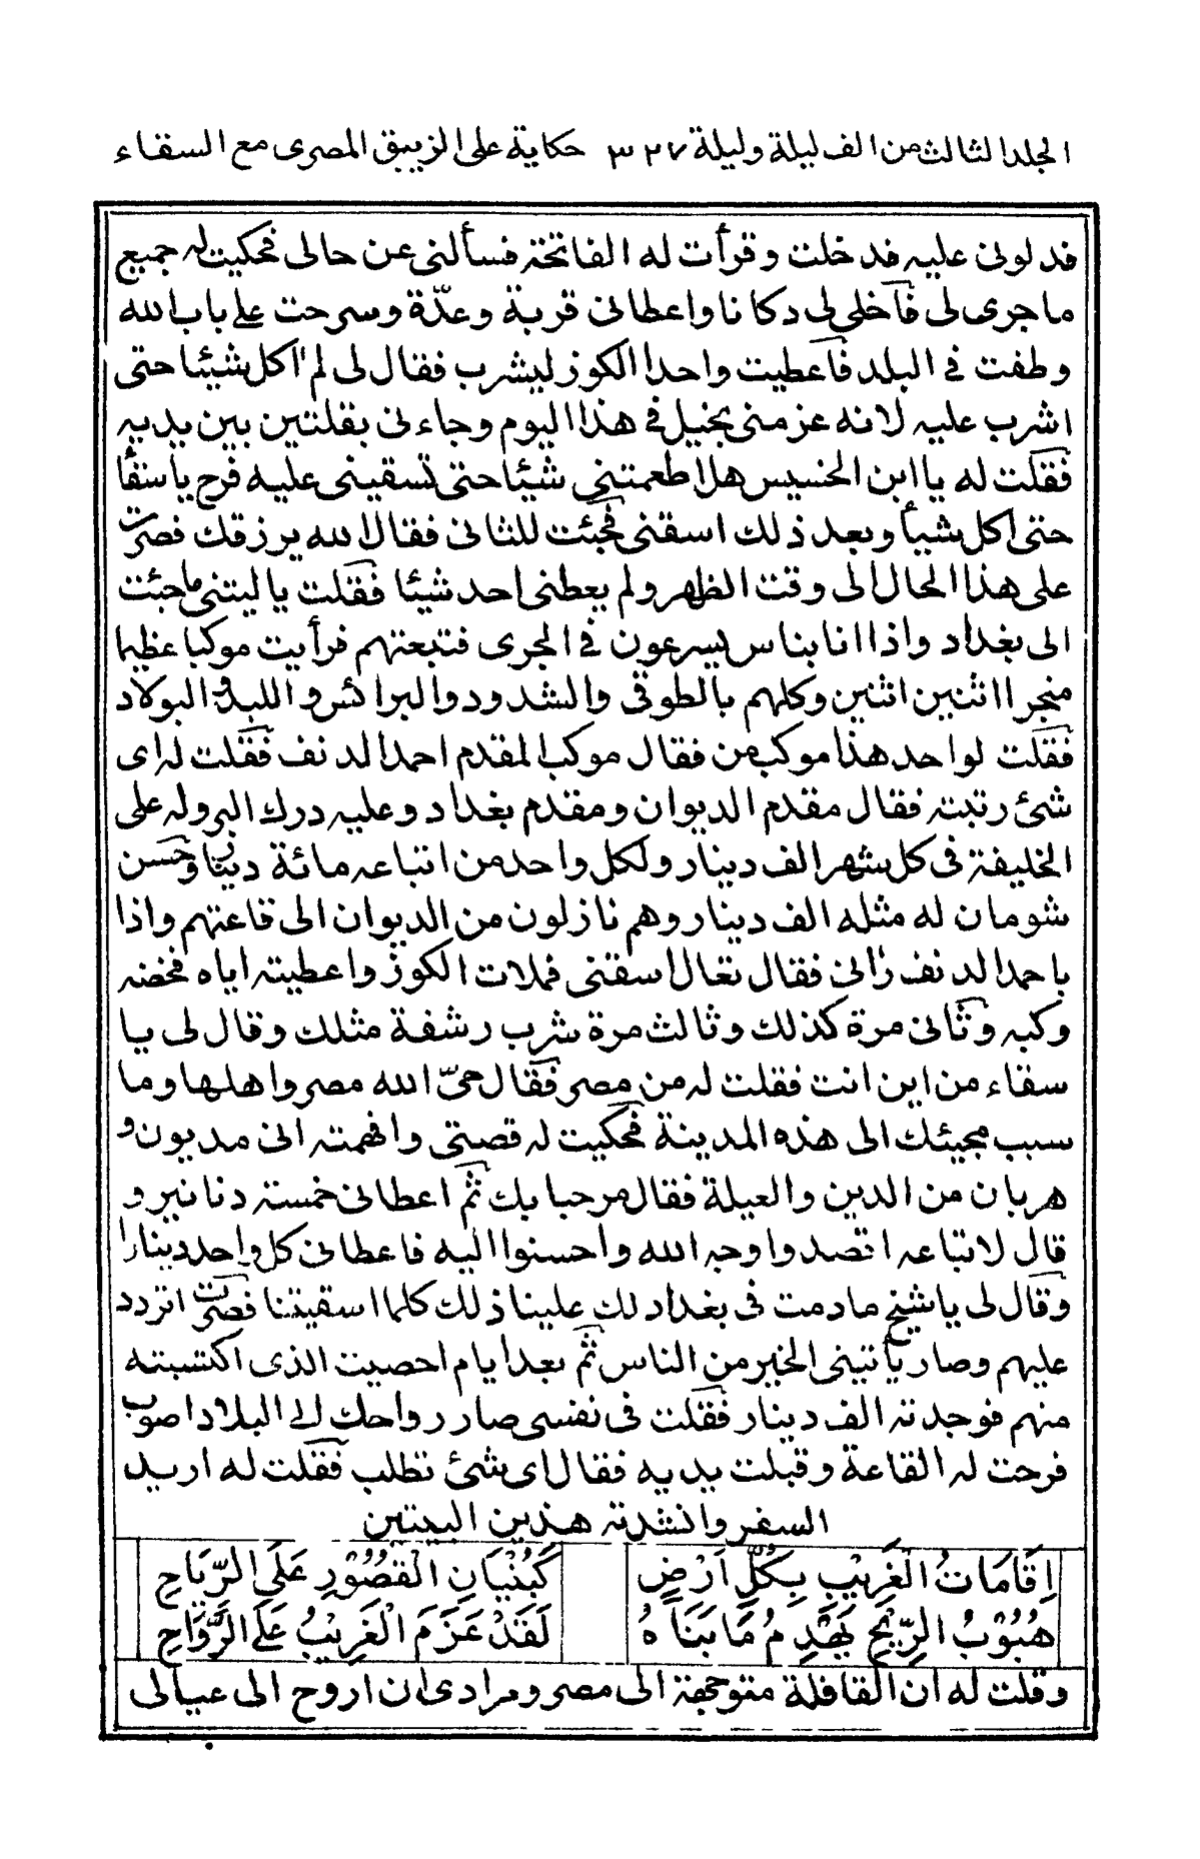 المجلد الثالث من الف ليلة وليلة ٣٢٧ حكاية على الزيبق المصرى مع السقاء
فدلونى عليه فدخلت وقرأت له الفاتحة فسألنى عن حالى فحكيت له جميع
ما جرى لى فأخلى لى دكانا واعطانى قربة وعدّة وسرحت على باب الله
وطفت فى البلد فأعطيت واحدا الكوز ليشرب فقال لى لم اكل شيئا حتى
اشرب عليه لانه عزمنى بخيل فى هذا اليوم وجاءنى بقلتين بين يديه
فقلت له يا ابن الخسيس هل اطعمتنى شيئا حتى تسقينى عليه فرح يا سقّا
حتى اكل شيأ وبعد ذلك اسقنى فجئت للثانى فقال الله يرزقك فصرت
على هذا الحال الى وقت الظهر ولم يعطنى احد شيئا فقلت يا ليتنى ما جئت
الى بغداد واذا انا بناس يسرعون فى الجرى فتبعتهم فرأيت موكبا عظيما
منجرا اثنين اثنين وكلهم بالطوقى والشدود والبرانس واللبد والبولاد
فقلت لواحد هذا موكب من فقال موكب المقدم احمد الدنف فقلت له اى
شئ رتبته فقال مقدم الديوان ومقدم بغداد وعليه درك البر وله على
الخليفة فى كل شهر الف دينار ولكل واحد من اتباعه مائة دينار وحسن
شومان له مثله الف دينار وهم نازلون من الديوان الى قاعتهم واذا
باحمد الدنف رانى فقال تعال اسقنى فملات الكوز واعطيته اياه فخضه
وكبه وثانى مرة كذلك وثالث مرة شرب رشفة مثلك وقال لى يا
سقاء من اين انت فقلت له من مصر فقال حىّ الله مصر واهلها وما
سبب مجيئك الى هذه المدينة فحكيت له قصتى وافهمته انى مديون و
هربان من الدين والعيلة فقال مرحبا بك ثم اعطانى خمسة دنانير و
قال لاتباعه اقصدوا وجه الله واحسنوا اليه فاعطانى كل واحد دينارا
وقال لى يا شيخ ما دمت فى بغداد لك علينا ذلك كلما اسقيتنا فصرت اتردد
عليهم وصار يأتينى الخير من الناس ثم بعد ايام احصيت الذى اكتسبته
منهم فوجدته الف دينار فقلت فى نفسى صار رواحك الى البلاد اصوب
فرحت له القاعة وقبلت يديه فقال اى شئ تطلب فقلت له اريد
السفر وانشدته هذين البيتين
اِقَامَاتُ الْغَرِيْبِ بِكُلِّ اَرْضٍ كَبُنْيَانِ الْقُصُوْرِ عَلَى الرِّيَاحِ
هُبُوْبُ الرِّيْحِ يَهْدِمُ مَا بَنَاهُ لَقَدْ عَزَمَ الْغَرِيْبُ عَلَى الرَّوَاحِ
وقلت له ان القافلة متوجهة الى مصر ومرادى ان اروح الى عيالى